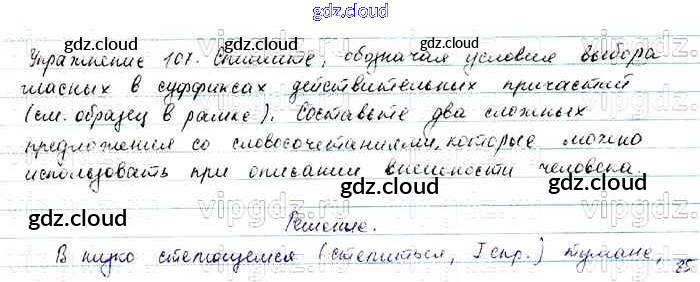 gdz.cloud
Упражнение 107. Спишите, обозначая условия выбора
гласных в суффиксах действительных причастий
(см. образец в рамке). Составьте два сложных
предложения со словосочетаниями, которые можно
использовать при описании внешности человека.
Решение.
В низко стелющемся (стелиться, I спр.) тумане,
25
gdz.cloud
gdz.cloud
gdz.cloud
gdz.cloud
gdz.cloud
gdz.cloud
gdz.cloud
gdz.cloud